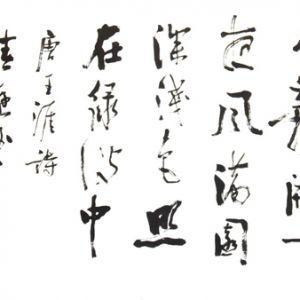 新開一
夜风满園
深淺色照
在绿波中
唐王涯詩